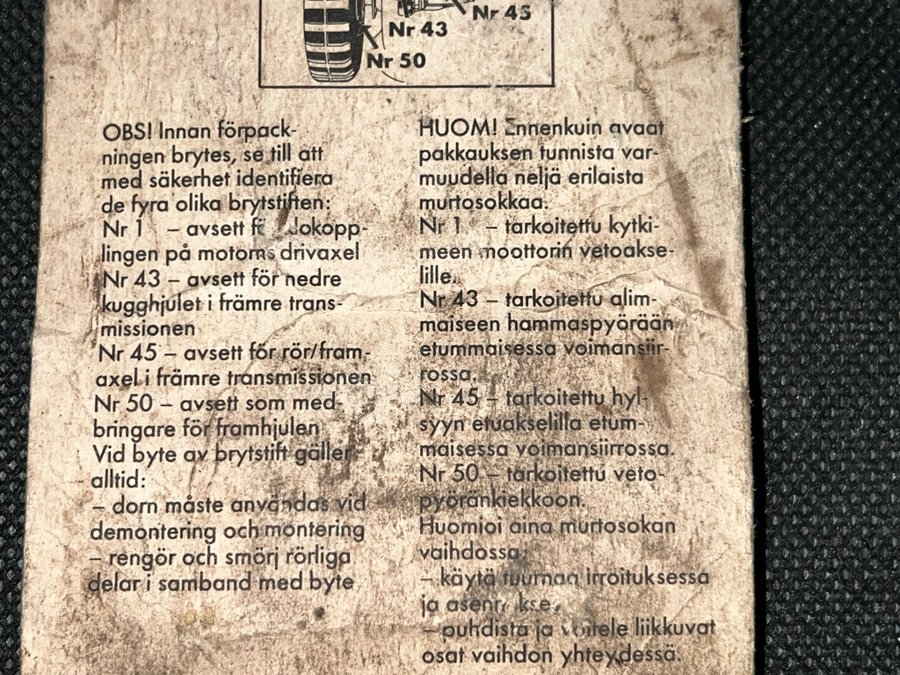 Nr 45
Nr 43
Nr 50
OBS! Innan förpack-
ningen brytes, se till att
med säkerhet identifiera
de fyra olika brytstiften:
Nr 1 – avsett
lingen på motorns drivaxel
Nr 43 – avsett för nedre
kugghjulet i främre trans-
missionen
Nr 45 – avsett för rör/fram-
axel i främre transmissionen
Nr 50 – avsett som med-
bringare för framhjulen
Vid byte av brytstift gäller
alltid:
– dorn måste användas vid
demontering och montering
– rengör och smörj rörliga
delar i samband med byte
HUOM! Ennenkuin avaat
pakkauksen tunnista var-
muudella neljä erilaista
murtosokkaa.
Nr 1 – tarkoitettu kytki-
meen moottorin vetoakse-
lille.
Nr 43 – tarkoitettu alim-
maiseen hammaspyörään
etummaisessa voimansiir-
rossa.
Nr 45 – tarkoitettu hyl-
syyn etuakselilla etum-
maisessa voimansiirrossa.
Nr 50 – tarkoitettu veto-
pyöränkiekkoon.
Huomioi aina murtosokan
vaihdossa:
– käytä tuurnan irroituksessa
ja
– puhdista ja voitele liikkuvat
osat vaihdon yhteydessä.